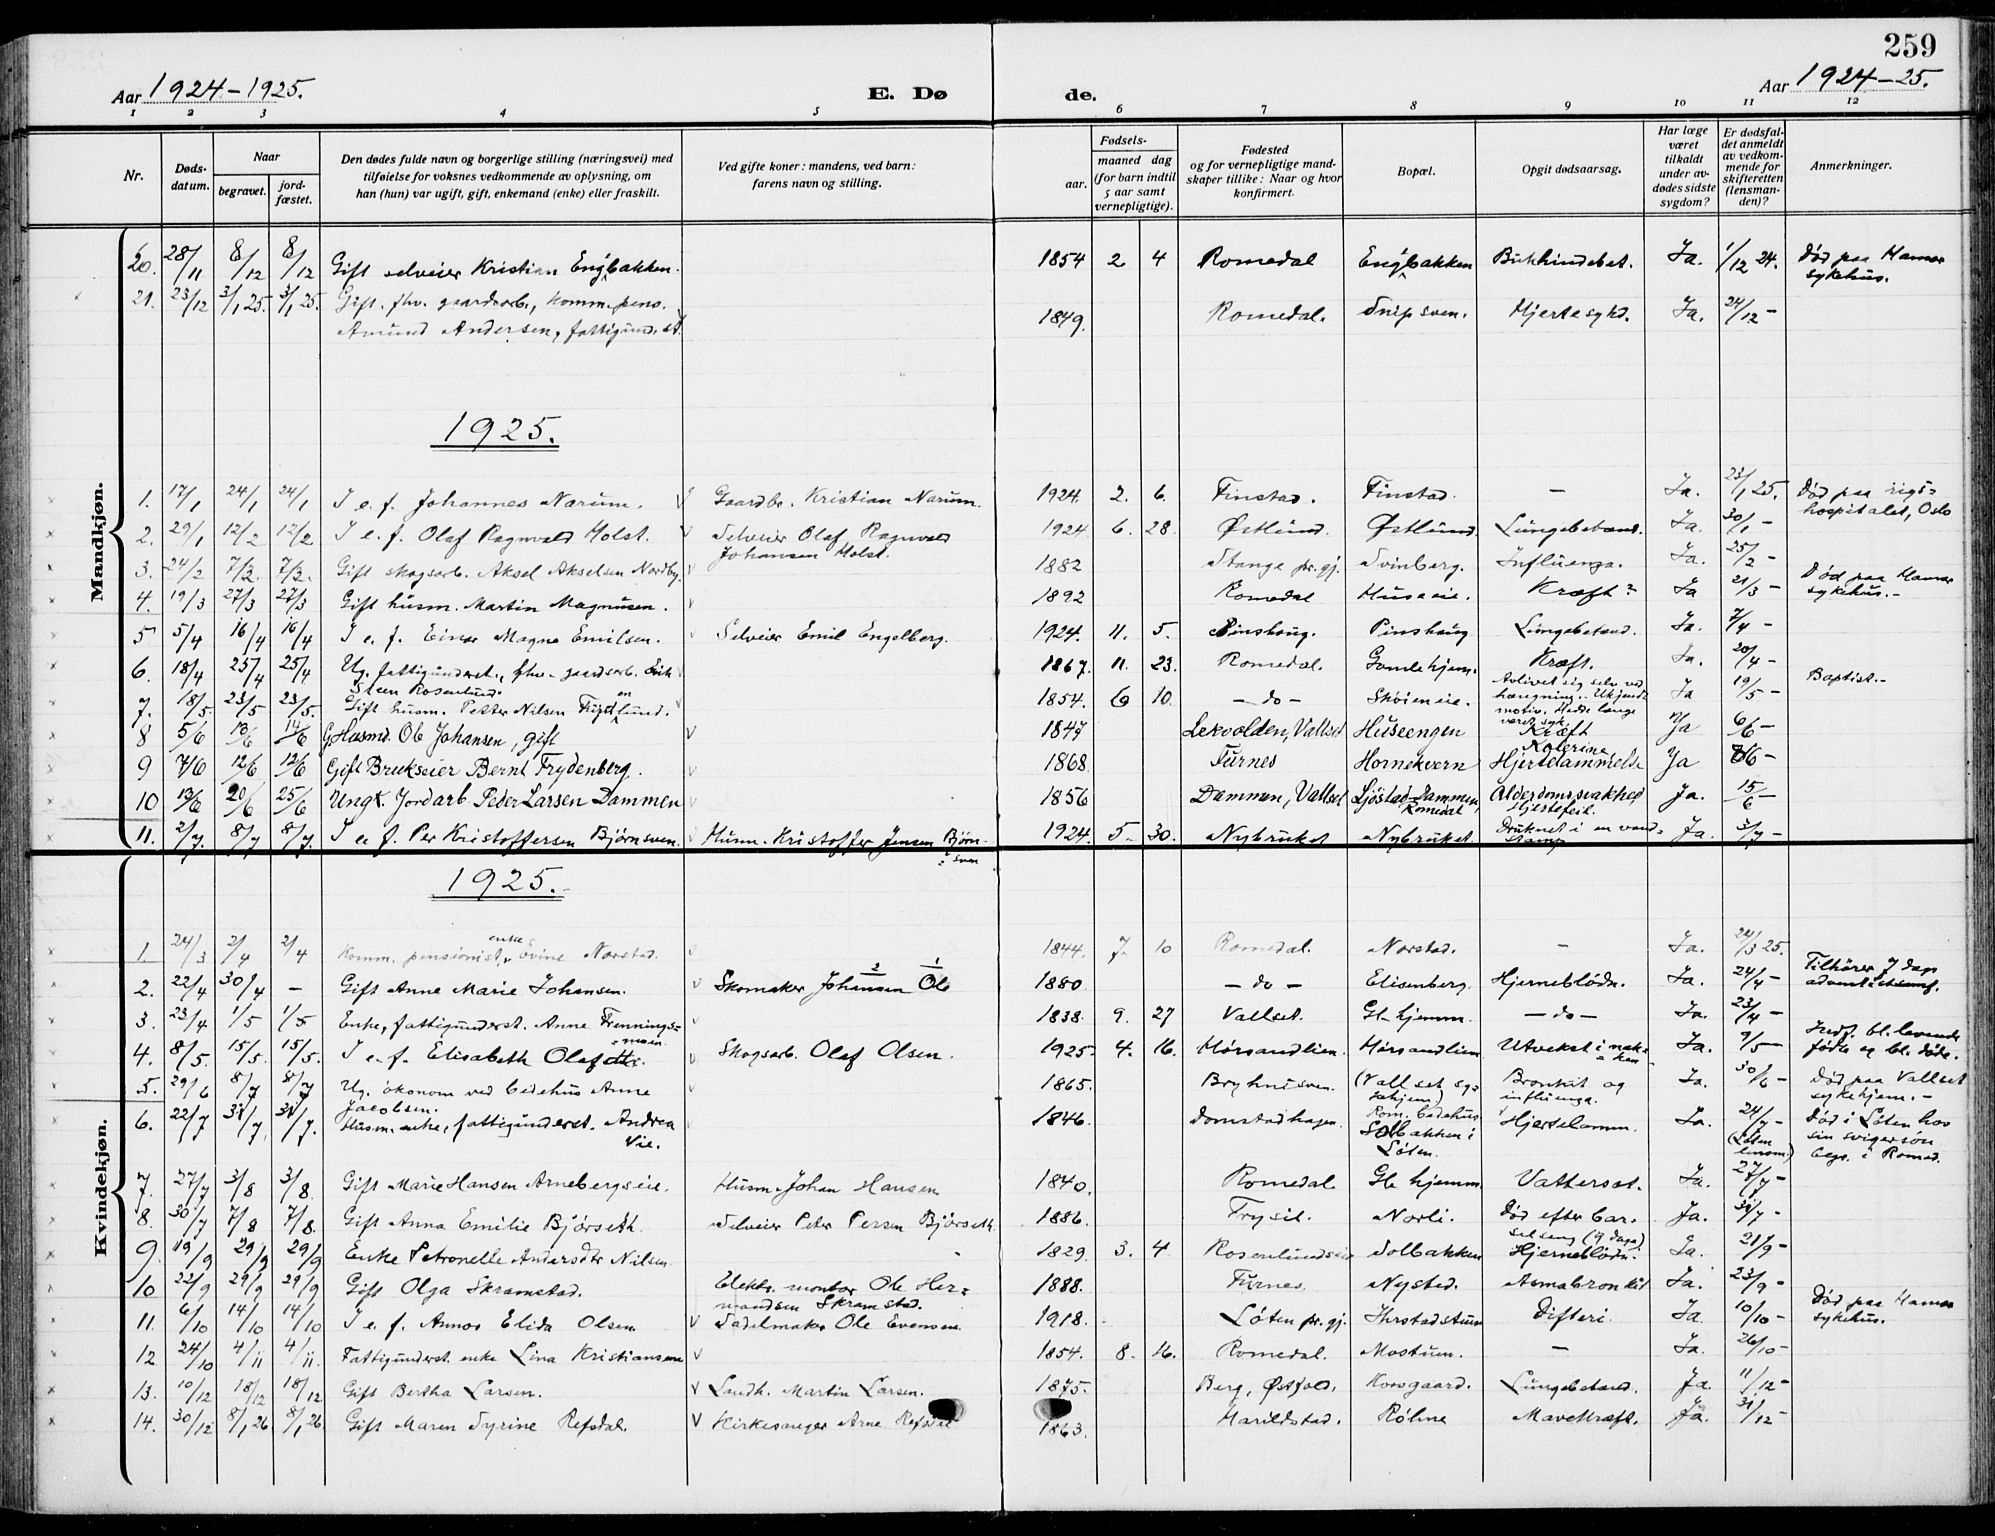 259
Aar 1924-1925.
E. Dø
de.
Aar 1924-25.
1 2 3 4 5 6 7 8 9 10 11 12
Nr.
Døds-
datum.
Naar
begravet.
jord-
fæstet.
Den dødes fulde navn og borgerlige stilling (næringsvei) med
tilføielse for voksnes vedkommende av oplysning, om
han (hun) var ugift, gift, enkemand (enke) eller fraskilt.
Ved gifte koner: mandens, ved barn:
farens navn og stilling.
Fødsels-
aar.
maaned dag
(for barn indtil
5 aar samt
vernepligtige).
Fødested
og for vernepligtige mand-
skaper tillike: Naar og hvor
konfirmert.
Bopæl.
Opgit dødsaarsag.
Har læge
været
tilkaldt
under av-
dødes sidste
sygdom?
Er dødsfal-
det anmeldt
av vedkom-
mende for
skifteretten
(lensman-
den)?
Anmerkninger.
Mandkjøn.
20. 28/11 8/12 8/12 Gift selveier Kristian Engbakken. 1854 2 4 Romedal Engbakken Bukhindebet. Ja. 1/12 24. Død paa Hamar
sykehus.
21. 23/12 3/1 25. 3/1 25. Gift. fhv. gaardsarb., komm. pens.
Amund Andersen, fattigund.st. 1849. Romedal. Snipsven. Hjertesykd. Ja. 24/12 -
1925.
1. 17/1 24/1 24/1 I e. f. Johannes Narum. Gaardbr. Kristian Narum. 1924. 2. 6. Finstad. Finstad. - Ja. 23/1 25. Død paa rigs-
hospitalet, Oslo
2. 29/1 12/2 12/2 I e. f. Olaf Ragnvald Holst. Selveier Olaf Ragnvald
Johansen Holst. 1924 6. 28. Østlund. Østlund. Lungebetænd. Ja. 30/1 -
3. 24/2 7/3. 7/3. Gift skogsarb. Aksel Akselsen Nordby. 1882 Stange pr.gj. Svinberg. Influenza. Ja. 25/2 -
4. 19/3 27/3 27/3 Gift husm. Martin Magnusen. 1892 Romedal Huseeie. Kræft? Ja 21/3 - Død paa Hamar
sykehus.-
5 5/4 16/4 16/4 I e. f. Einar Magne Emilsen. Selveier Emil Engelberg. 1924. 11. 5. Pinshaug. Pinshaug Lungebetænd. Ja. 7/4 -
6. 18/4 25/4 25/4 Ug. fattigunderst., fhv. gaardsarb. Erik
Steen Rosenlund. 1867. 11. 23. Romedal. Gamlehjem. Kræft. Ja. 20/4 - Baptist.-
7. 18/5. 23/5 23/5. Gift husm. Petter Nilsen Frydenlund. 1854. 6 10. -do- Skøieneie. Avlivet sig selv ved
hængning. Ukjendt
motiv. Hadde længe
været syk. Ja 19/5 -
8 5/6 13/6 14/6 Husmd. Ole Johansen, gift 1847 Lekvolden, Vallset Huseengen Kræft Ja 6/6 -
9 7/6 12/6 12/6 Gift Brukseier Bernt Frydenberg. 1868. Furnes Hornekvern Hjertelammelse Ja 8/6 -
10 13/6 20/6 25/6 Ungk. Jordarb Peder Larsen Dammen 1856 Dammen, Vallset Ljøstad-Dammen,
Romedal Alderdomssvakhed
Hjertefeil. Ja. 15/6 -
11. 2/7. 8/7 8/7. I e. f. Per Kristoffersen Bjørnsven. Husm. Kristoffer Jensen Bjørn-
sven 1924. 5. 30. Nybruket Nybruket. Druknet i en vand-
damp Ja. 3/7 -
1925.
Kvindekjøn.
1. 24/3 2/4 2/4 Komm. pensionist, enke Evine Norstad. 1844. 7. 10 Romedal. Norstad. - Ja. 24/3 25.
2. 22/4 30/4 - Gift Anne Marie Johansen. Skomaker Johansen Ole 1880 -do- Elisenberg. Hjerneblødn. Ja. 24/4 - Tilhører 7 dags
adventistsamf.
3. 23/4 1/5 1/5 Enke, fattigunderst. Anne Trennings-
moin 1838. 9. 27 Vallset. Gl. hjemm. -do- Ja. 23/4 -
4. 8/5. 15/5. 15/5. I e. f. Elisabeth Olafdtr. Skogsarb. Olaf Olsen. 1925. 4. 16. Mørsandlien. Mørsandlien Utvekst i nak-
ken Ja. 9/5 - Indf. bl. levende
fødte og bl. døde.
5. 29/6 8/7 8/7 Ug. økonom ved bedehus Anne
Jacobsen. 1865. Bryhnisven. (Vallset sy-
kehjem)
Rom. bedehus. Bronkit og
influenza. Ja. 30/6 - Død paa Vallset
sykehjem.-
6. 22/7 31/7. 31/7. Husm.enke, fattigunderst. Andrea
Vie. 1846. Domstadhagen. Solbakken i
Løten. Hjertelamm. Ja. 24/7 -
(Løten
lensm.) Død i Løten hos
sin svigersøn
begr. i Romed.
7. 27/7 3/8 3/8. Gift Marie Hansen Arnebergseie. Husm. Johan Hansen 1840. Romedal Gl. hjemm. Vattersot. Ja. 27/7 -
8. 30/7 7/8 7/8. Gift Anna Emilie Bjørseth. Selveier Peter Persen Bjørseth 1886. Trysil. Norli. Død efter bar-
selseng (9 daga) Ja. 31/7 -
9. 19/9 29/9 29/9 Enke Petronelle Andersdtr Nilsen. 1829. 3. 4 Rosenlundseie Solbakken Hjerneblødn. Ja. 21/9 -
10 22/9 29/9 29/9 Gift Olga Skramstad. Elektr. montør Ole Her-
mandsen Skramstad. 1888. Furnes. Nysted. Asmabronkit Ja. 23/9 -
11. 6/10 14/10 14/10 I e. f. Annar Elida Olsen Sadelmaker Ole Evensen. 1918. Løten pr.gj. Ihrstadstuen Difteri. Ja 10/10 - Død paa Hamar
sykehus.
12 24/10 4/11 4/11. Fattigunderst. enke Lina Kristiansen 1854. 8. 16. Romedal. Mostuen. - Ja. 26/10 -
13. 10/12 18/12 18/12 Gift Bertha Larsen. Landh. Martin Larsen. 1875. Berg, Østfold. Korsgaard. Lungebetænd. Ja. 11/12 -
14. 30/12 8/1 26. 8/1 26. Gift Maren Syrine Refsdal. Kirkesanger Arne Refsdal 1863. Harildstad. Røhne Mavekræft. Ja. 31/12 -